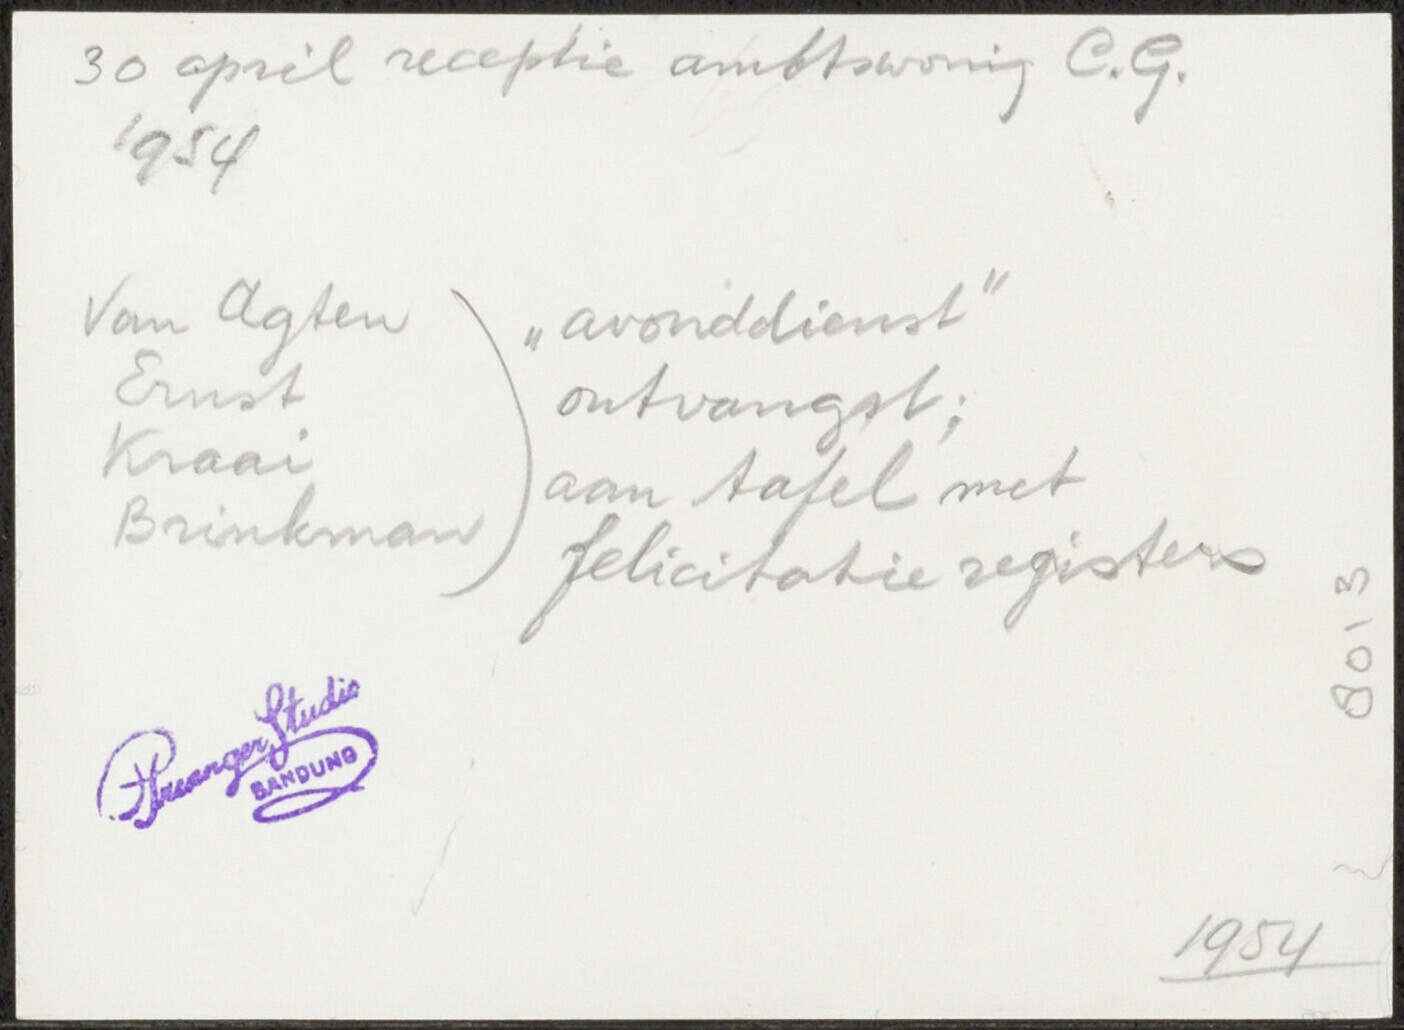 30 april receptie ambtswonig C.G.
1954
Van Agten
Ernst
Kraai
Brinkman
„avonddienst"
ontvangst;
aan tafel met
felicitatie registers
Preanger Studio
BANDUNG
8013
1954